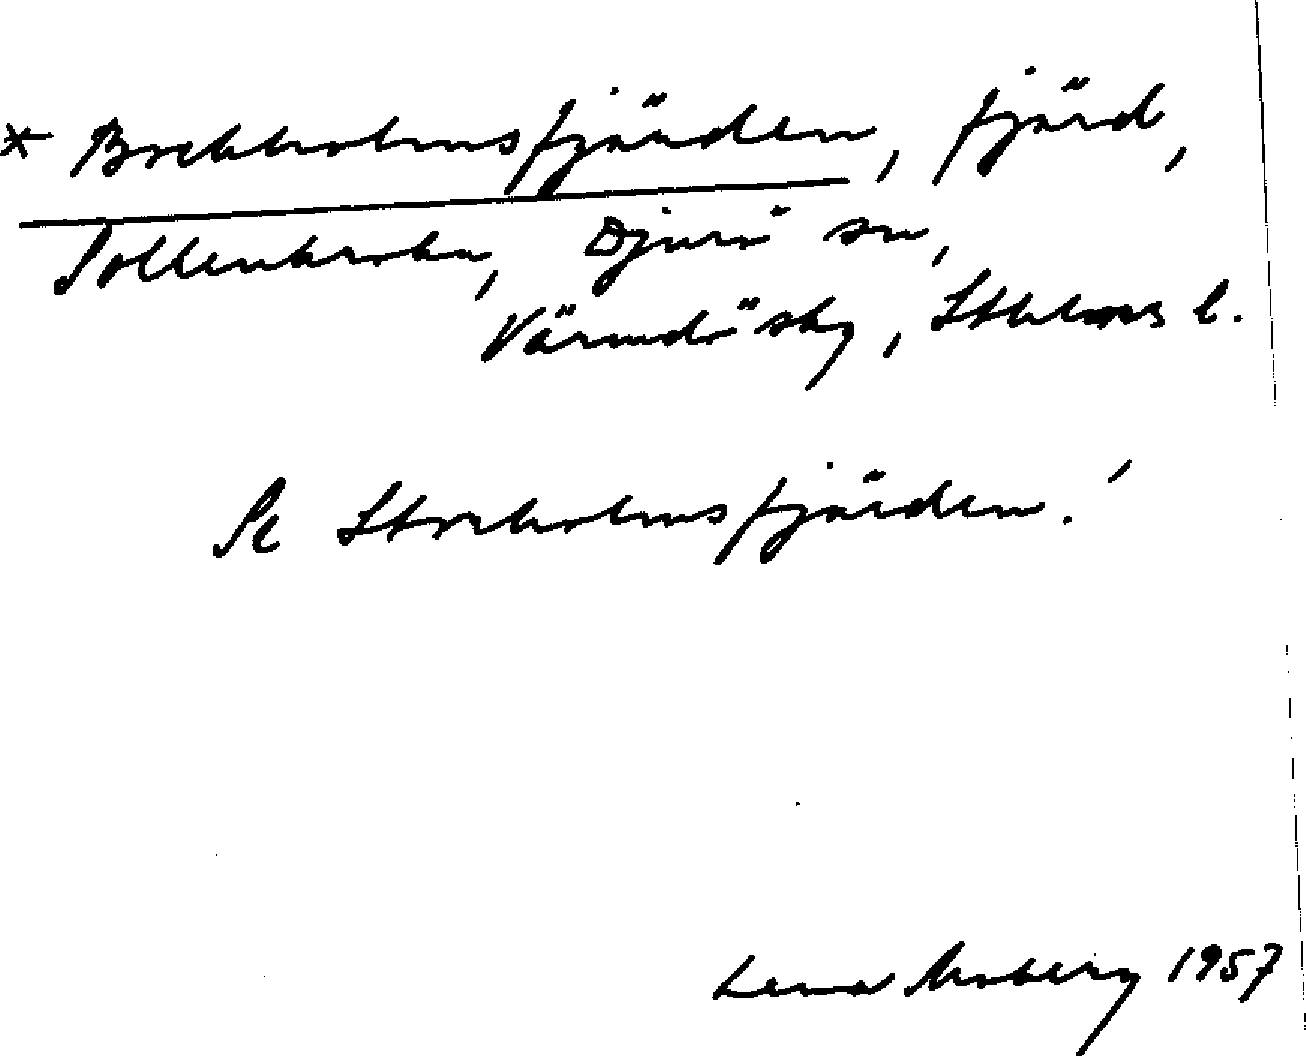 * Bockholmsfjärden, fjärd,
Sollenkroka, Djurö sn,
Värmdö sky, Sthlms l.
Se Storholmsfjärden!
Lena Moberg 1957